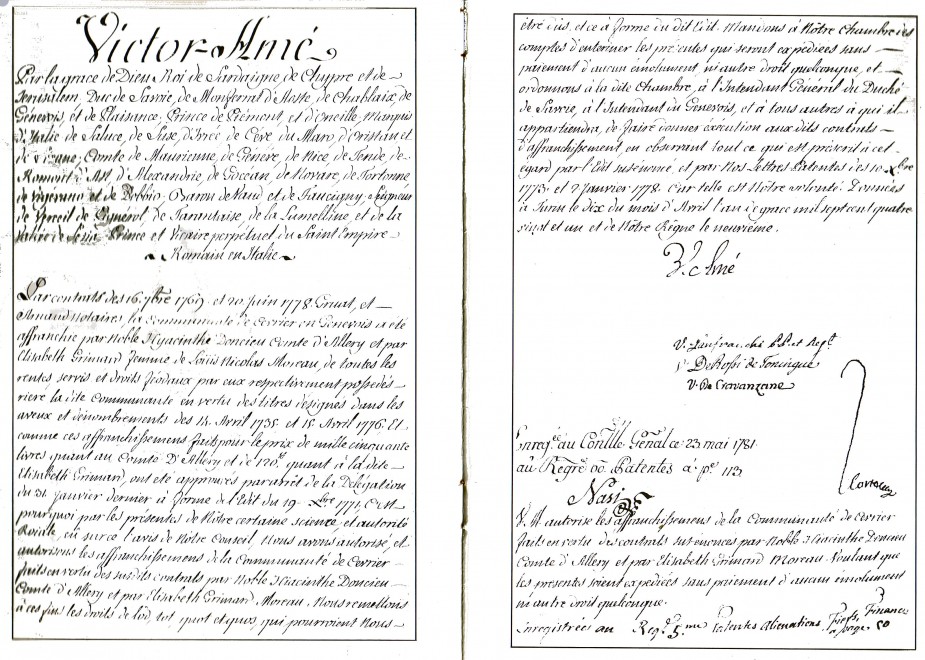 Victor-Amé
Par la grace de Dieu Roi de Sardaigne, de Chypre et de
Jerusalem, Duc de Savoie, de Monferrat d'Aoste, de Chablaix, de
Genevois, et de Plaisance, Prince de Piémont, et d'Oneille, Marquis
d'Italie de Saluce, de Suse, d'Ivrée de Céve du Maro, d'Oristan et
de Comte de Maurienne, de Genéve, de Nice, de Tende, de
Romont d'Ast, d'Alexandrie, de Gocéan, de Novare, de Tortonne
de Vigévano et de Bobbio, Baron de Vaud et de Faucigny, Seigneur
de Verceil de Pignerol, de Tarantaise, de la Lumelline, et de la
Vallée de Sesia, Prince et Vicaire perpétuel du Saint Empire
Romain en Italie
Par contrats des 16 7bre 1769 et 20 Juin 1778 Gruat, et
Arnaud notaires, la communauté de Cerrier en Genevois a été
affranchie par Noble Hyacinthe Doncieu Comte d'Allery et par
Elisabeth Grimard femme de Louis Nicolas Moreau, de toutes les
rentes servis et droits féodaux par eux respectivement possedés
riere la dite Communauté en vertu des titres désignés dans les
aveux et dénombrements des 14 Avril 1735 et 15 Avril 1776. Et
comme ces affranchissemens faits pour le prix de mille cinquante
livres quant au Comte D'Allery et de 120 quant à la dite
Elisabeth Grimard, ont eté approuvés par arrêt de la Délégation
du 31 Janvier dernier à forme de l'Edit du 19 Xbre 1771, C'est
pourquoi par les présentes de Nôtre certaine science, et autorité
Roiale, eu sur ce l'avis de Notre Conseil Nous avons autorisé, et
autorisons les affranchissemens de la Communauté de Cerrier
faits en vertu des susdits contrats par Noble Hiacinthe Doncieu
Comte d'Allery et par Elisabeth Grimard Moreau. Nous remettons
à ces fins les droits de lod, tot, quot et quos, qui pourroient nous
être dûs, et ce à forme du dit Edit. Mandons à Nôtre Chambre des
comptes d'enteriner les présentes qui seront expédiées sans
paiement d'aucun émolument ni autre droit quelconque, et
ordonnons à la dite Chambre, à l'Intendant Général du Duché
de Savoie, à l'Intendant du Genevois, et à tous autres à qui il
appartiendra, de faire donner exécution aux dits contrats
d'affranchissement en observant tout ce qui est préscrit à cet
egard par l'Edit susénoncé, et par Nos Lettres Patentes des 10 Xbre
1773 et 2 Janvier 1778. Car telle est Nôtre volonté. Données
à Turin le dix du mois d'Avril l'an de grace mil sept cent quatre
vingt et un et de Nôtre Règne le neuvième.
V. Amé
V.
V. De Rossi de Tonengue
V. De Cravanzane
Enregée au Conlle Genal ce 23 mai 1781
au Regre 60 Patentes à pe 113
Nasi
V. M. autorise les affranchissemens de la Communauté de Cerrier
faits en vertu des contrats susénoncés par Noble Hiacinthe Doncieu
Comte d'Allery et par Elisabeth Grimard Moreau. Voulant que
les présentes soient expédiées sans paiement d'aucun émolument
ni autre droit quelconque.
Enregistrées au Regre 5me Patentes Alienations, Fiefs, Finances
à page 50